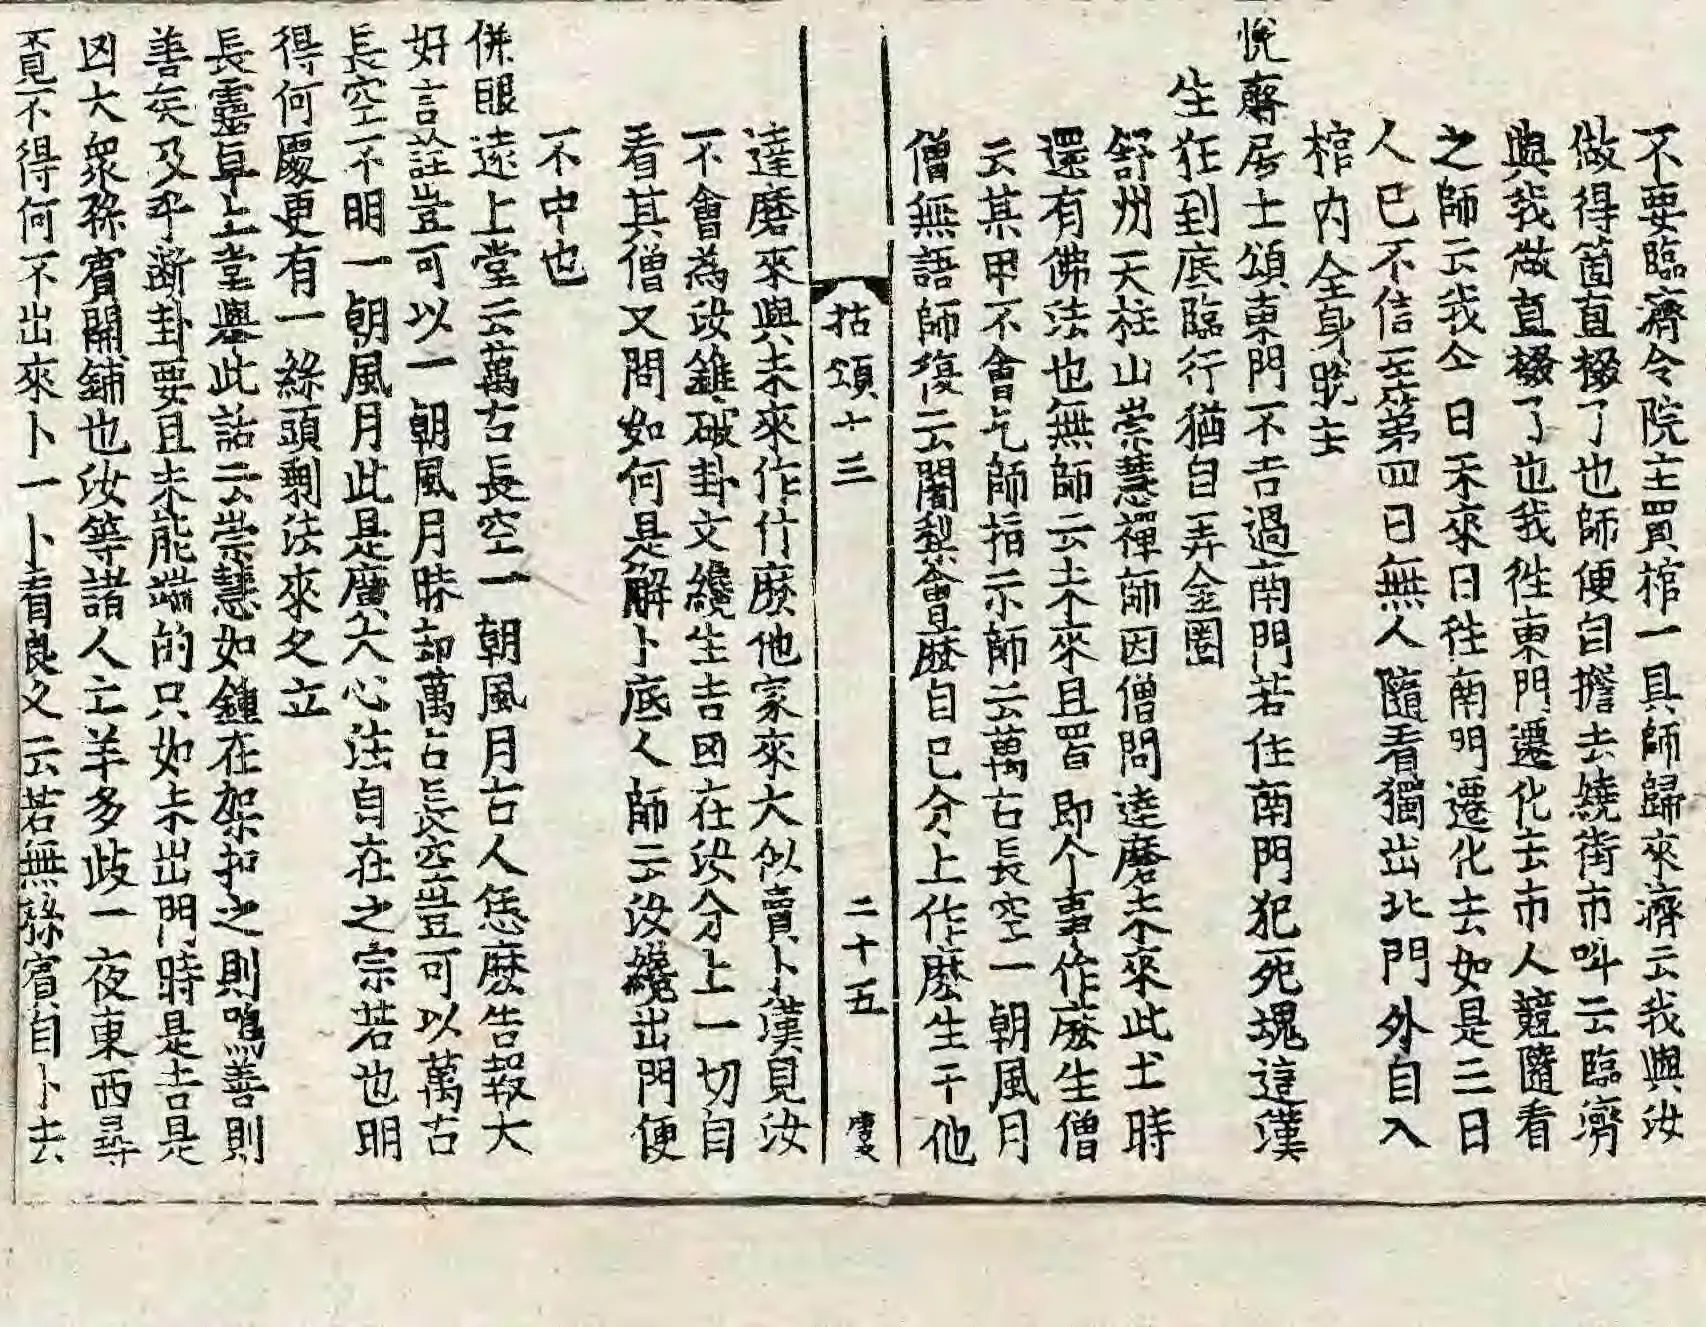 不要臨濟令院主買棺一具師歸來濟云我與汝
做得箇直掇了也師便自擔去繞街市叫云臨濟
與我做直掇了也我徃東門遷化去市人競隨看
之師云我今日未來日徃南門遷化去如是三日
人已不信至第四日無人隨看獨出北門外自入
棺內全身脫去
悅齋居士頌東門不吉過南門若住南門犯死塊這漢
生狂到底臨行猶自弄金圈
舒州天柱山崇慧禪師因僧問達磨未來此土時
還有佛法也無師云未來且置即今事作麽生僧
云某甲不會乞師指示師云萬古長空一朝風月
僧無語師復云闍梨會麽自己分上作麽生干他
拈頌十三 二十五
達磨來與未來作什麽他家來大似賣卜漢見汝
不會為汝錐破卦文纔生吉凶在汝分上一切自
看其僧又問如何是解卜底人師云汝纔出門便
不中也
併眼遠上堂云萬古長空一朝風月古人恁麽告報大
好言詮豈可以一朝風月昧却萬古長空豈可以萬古
長空不明一朝風月此是廣大心法自在之宗若也明
得何處更有一絲頭剩法來久立
長靈卓上堂舉此話云崇慧如鍾在架扣之則鳴善則
善矣及乎斷卦要且未能端的只如未出門時是吉是
凶大衆孫賓開鋪也汝等諸人亡羊多歧一夜東西尋
覓不得何不出來卜一卜看良久云若無孫賓自卜去